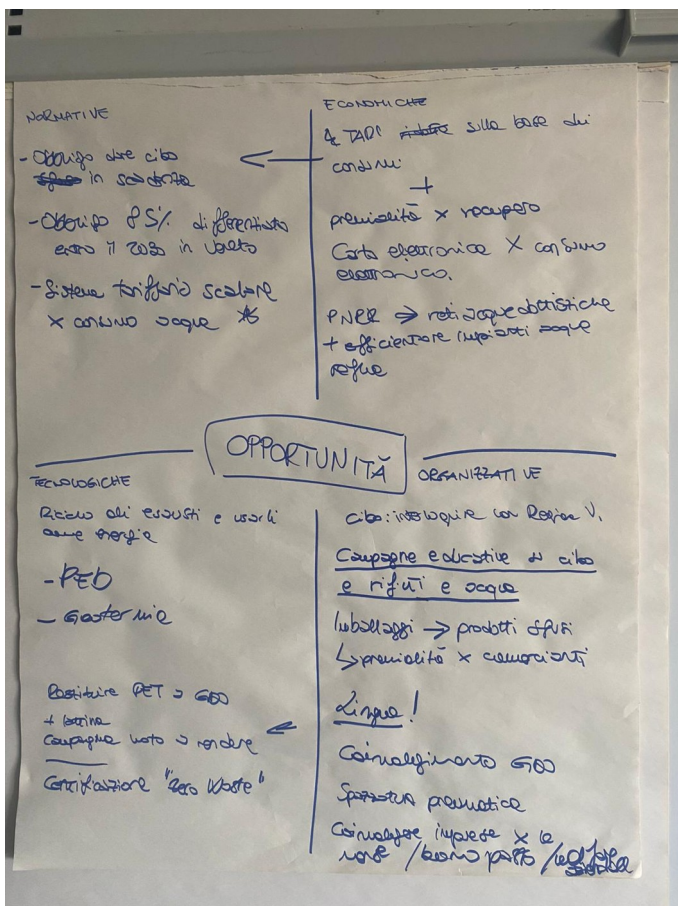 NORMATIVE
- Obbligo dare cibo
in scadenza
- Obbligo 85% differenziato
entro il 2030 in Veneto
- Sistema tariffario scalare
x consumo acqua
ECONOMICHE
TARI sulla base dei
consumi
+
premialità x recupero
Carta elettronica x consumo
elettronico.
PNRR → reti acquedottistiche
+ efficientare impianti acque
reflue
OPPORTUNITÀ
TECNOLOGICHE
Riciclo oli esausti e usarli
come energia
- PED
- Geotermia
Restituire PET a GDO
+ lattine
Campagna vuoto a rendere
Certificazione "Zero Waste"
ORGANIZZATIVE
cibo: interloquire con Regione V.
Campagne educative su cibo
e rifiuti e acqua
Imballaggi → prodotti sfusi
↳ premialità x commercianti
Lingua!
Coinvolgimento GDO
Spazzatura pneumatica
Coinvolgere imprese x le
/ buono pasto /